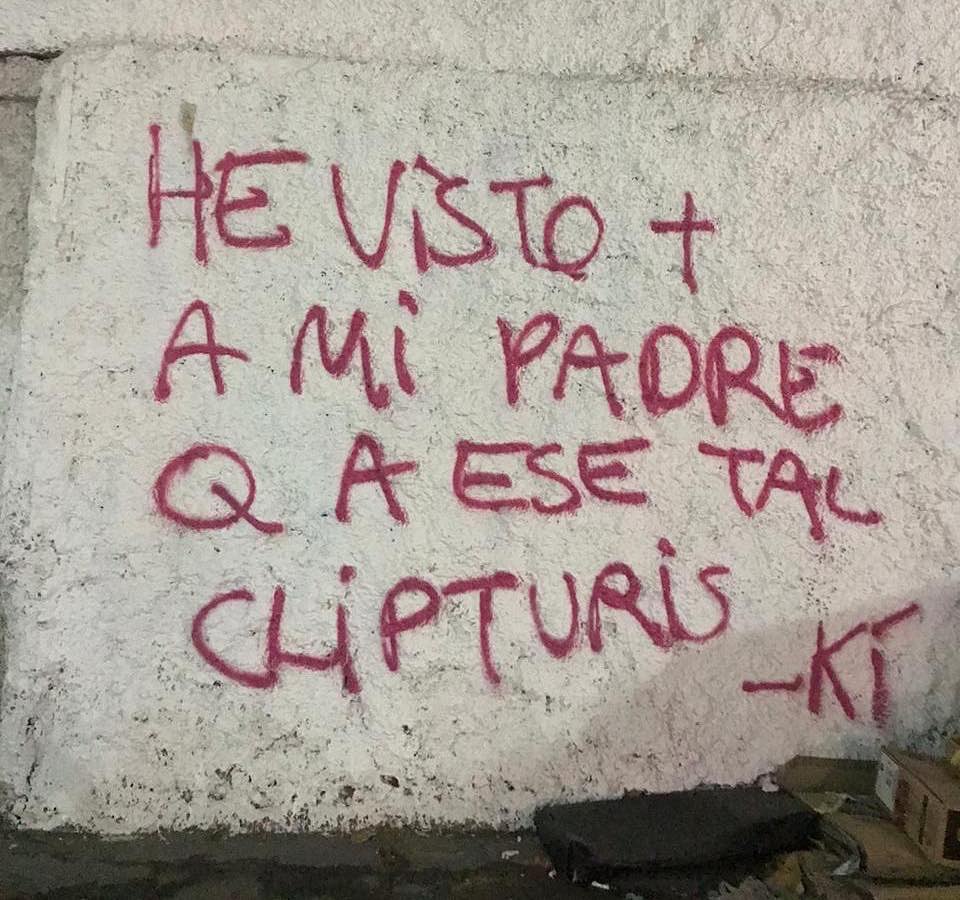 HE ViSTO +
A Mi PADRE
Q A ESE TAL
CLiPTURiS
-KT